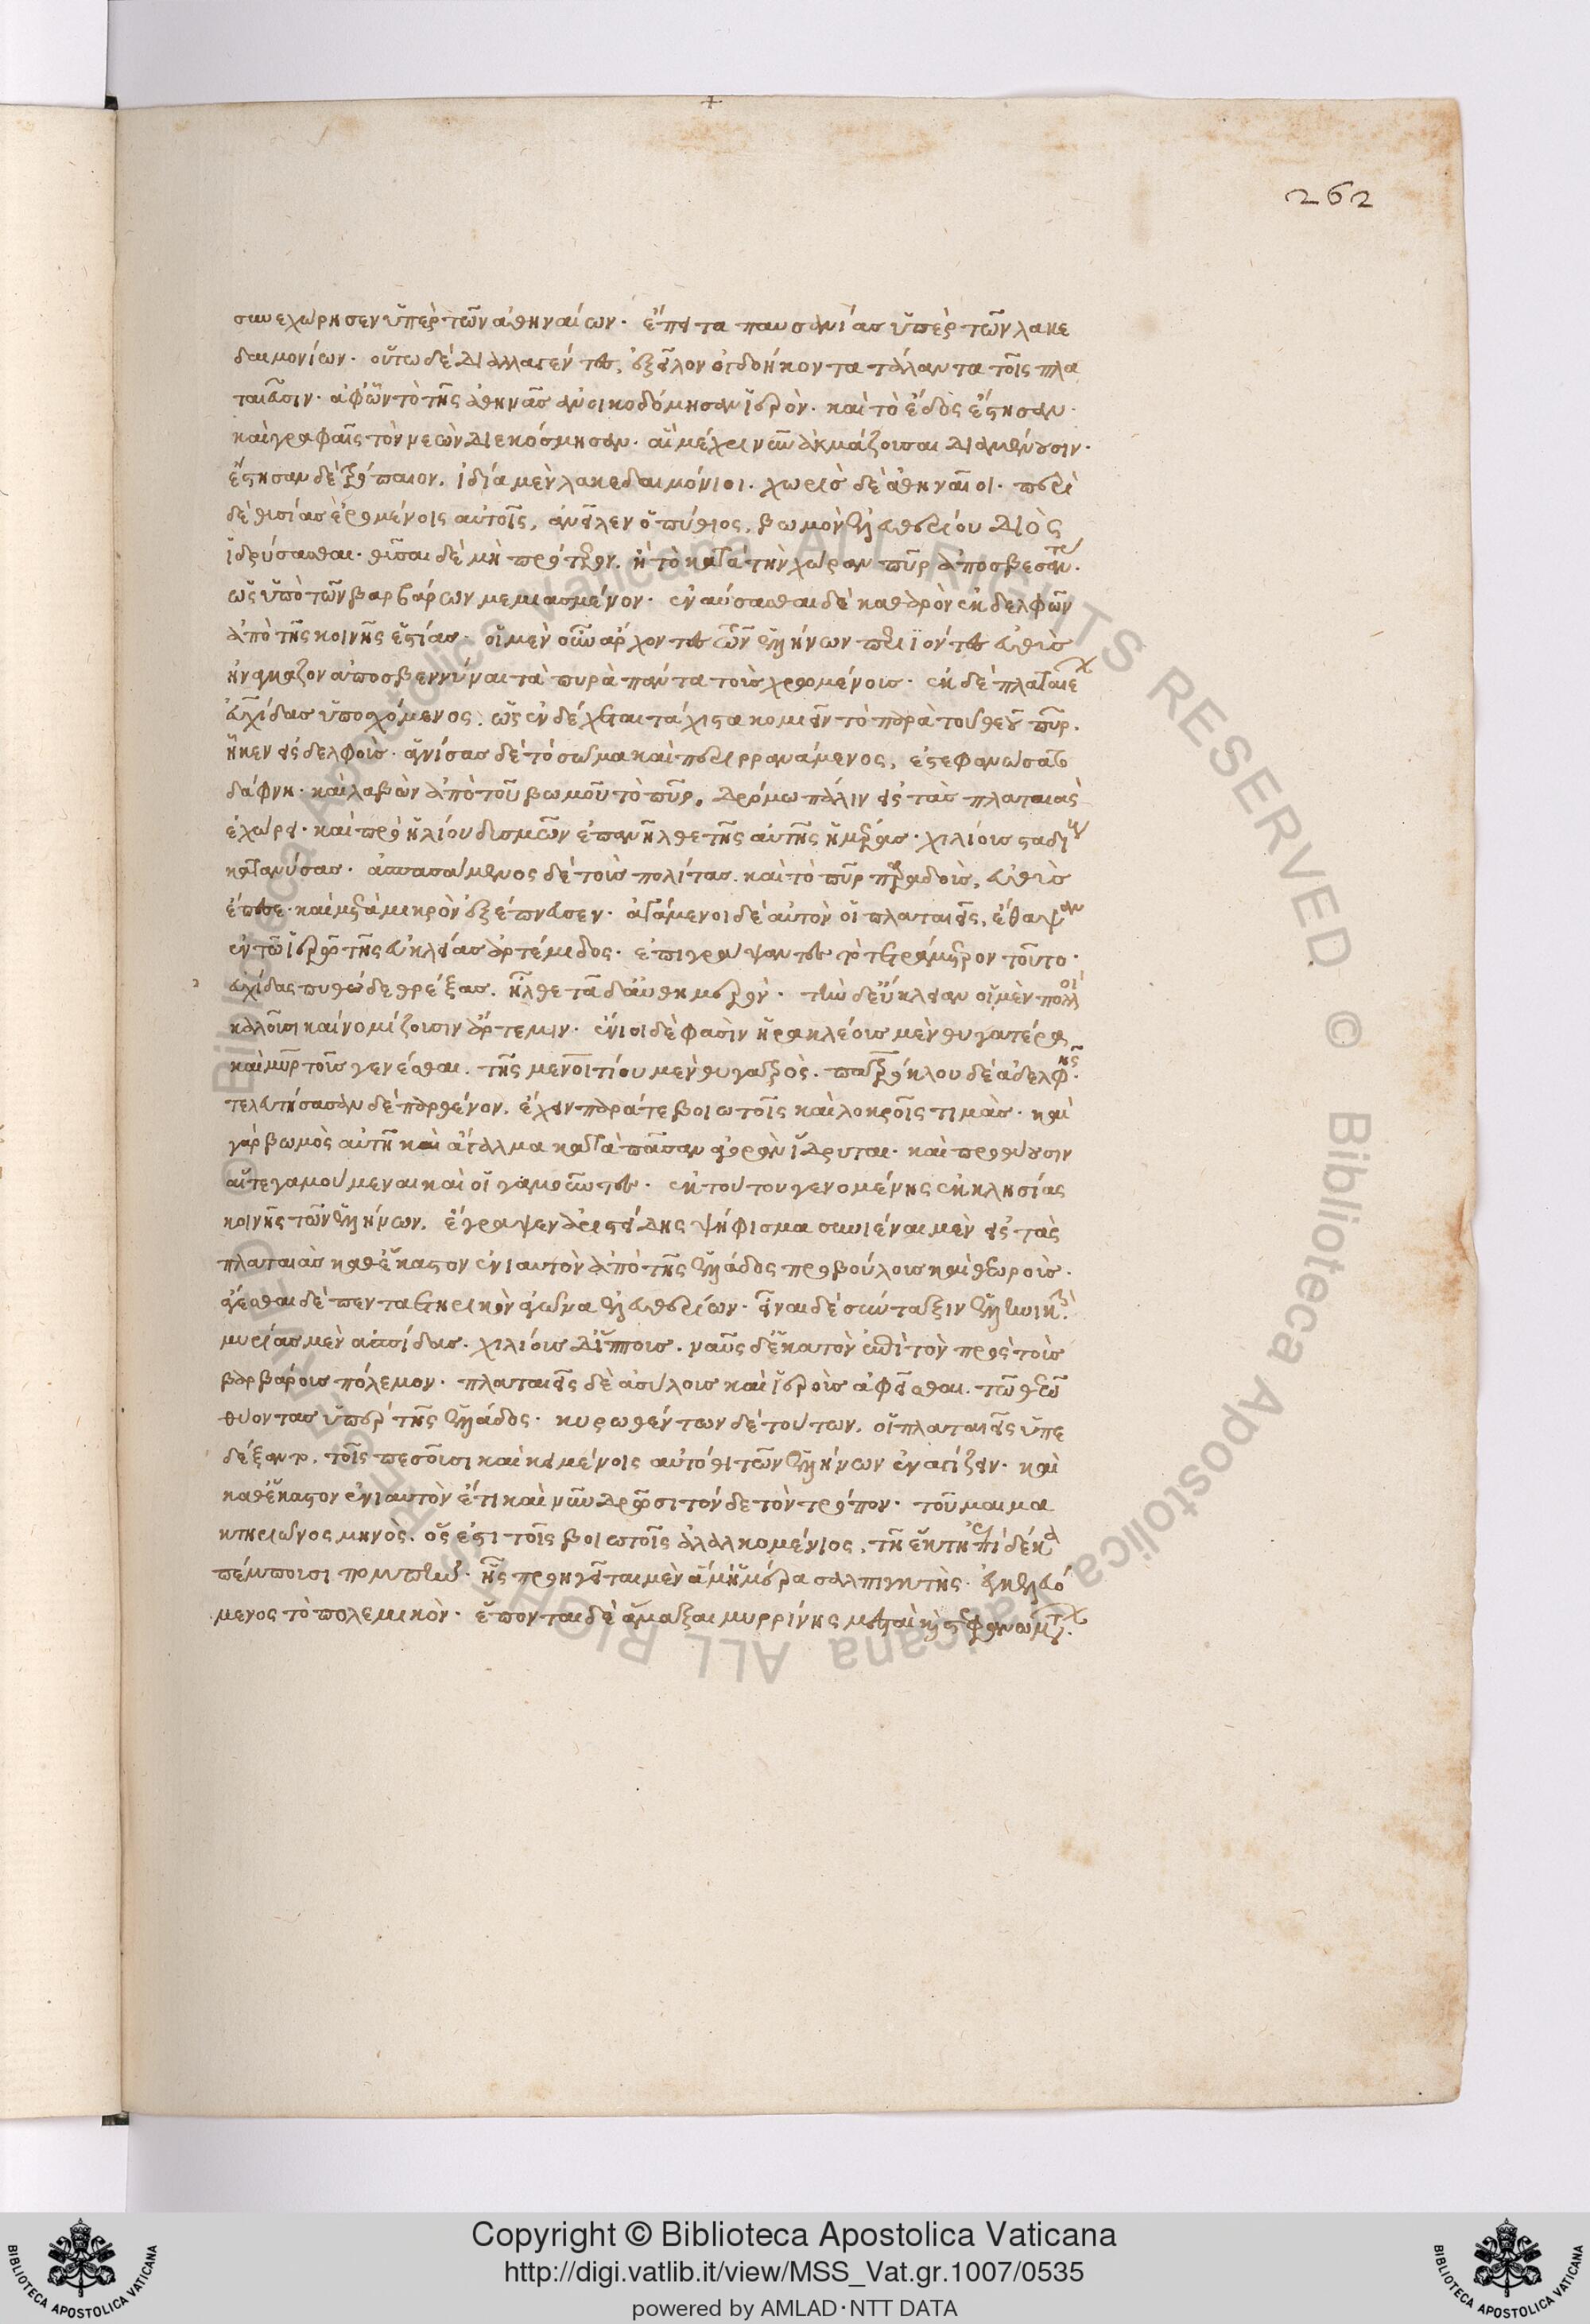 262
συνεχώρησεν ὑπὲρ τῶν ἀθηναίων· ἔπειτα παυσανίας ὑπὲρ τῶν λακε
δαιμονίων· οὕτω δὲ διαλλαγέντες, ἐξεῖλον ὀγδοήκοντα τάλαντα τοῖς πλα
ταιεῦσιν· ἀφ' ὧν τὸ τῆς ἀθηνᾶς ἀνοικοδόμησαν ἱερόν· καὶ τὸ ἕδος ἔστησαν·
καὶ γραφαῖς τὸν νεὼν διεκόσμησαν· αἳ μέχρι νῦν ἀκμάζουσαι διαμένουσιν·
ἔστησαν δὲ τρόπαιον, ἰδία μὲν λακεδαιμόνιοι. χωρὶς δὲ ἀθηναῖοι· περὶ
δὲ θυσίας ἐρομένοις αὐτοῖς, ἀνεῖλεν ὁ πύθιος, βωμὸν ἐλευθερίου Διὸς
ἱδρύσασθαι· θῦσαι δὲ μὴ πρότερον, ἢ τὸ κατὰ τὴν χώραν πῦρ ἀποσβέσαντας.
ὡς ὑπὸ τῶν βαρβάρων μεμιασμένον· ἐναύσασθαι δὲ καθαρὸν ἐκ δελφῶν
ἀπὸ τῆς κοινῆς ἑστίας· οἱ μὲν οὖν ἄρχοντες τῶν ἑλλήνων περιϊόντες εὐθὺς
ἠνάγκαζον ἀποσβεννύναι τὰ πυρὰ πάντα τοὺς χρωμένους· ἐκ δὲ πλαταιέων
εὐχίδας ὑποσχόμενος, ὡς ἐνδέχεται τάχιστα κομιεῖν τὸ παρὰ τοῦ θεοῦ πῦρ.
ἧκεν εἰς δελφούς· ἁγνίσας δὲ τὸ σῶμα καὶ περιρρανάμενος, ἐστεφανώσατο
δάφνη· καὶ λαβὼν ἀπὸ τοῦ βωμοῦ τὸ πῦρ, δρόμω πάλιν εἰς τὰς πλαταιὰς
ἐχώρει· καὶ πρὸ ἡλίου δυσμῶν ἐπανῆλθε τῆς αὐτῆς ἡμέρας· χιλίους σταδίους
κατανύσας· ἀσπασάμενος δὲ τοὺς πολίτας καὶ τὸ πῦρ παραδοὺς, εὐθὺς
ἔπεσε· καὶ μετὰ μικρὸν ἐξέπνευσεν· ἀγάμενοι δὲ αὐτὸν οἱ πλαταιεῖς, ἔθαψαν
ἐν τῶ ἱερῶ τῆς εὐκλείας ἀρτέμιδος· ἐπιγράψαντες τὸ τετράμετρον τοῦτο·
εὐχίδας πυθώδε θρέξας, ἦλθε τᾶδ' αὐθημερόν· τὴν δ' εὔκλειαν οἱ μὲν πολλοὶ
καλοῦσι καὶ νομίζουσιν ἄρτεμιν· ἔνιοι δέ φασιν ἡρακλέους μὲν θυγατέρα
καὶ μυρτοῦς γενέσθαι. τῆς μενοιτίου μὲν θυγατρὸς. πατρόκλου δὲ ἀδελφῆς.
τελευτήσασαν δὲ παρθένον, ἔχειν παρά τε βοιωτοῖς καὶ λοκροῖς τιμάς· καὶ
γὰρ βωμὸς αὐτῆ καὶ ἄγαλμα κατὰ πᾶσαν ἀγορὰν ἵδρυται· καὶ προθύουσιν
αἵ τε γαμούμεναι καὶ οἱ γαμοῦντες· ἐκ τούτου γενομένης ἐκκλησίας
κοινῆς τῶν ἑλλήνων, ἔγραψεν ἀριστείδης ψήφισμα συνιέναι μὲν εἰς τὰς
πλαταιὰς καθ' ἕκαστον ἐνιαυτὸν ἀπὸ τῆς ἑλλάδος προβούλους καὶ θεωρούς.
ἄγεσθαι δὲ πενταετηρικὸν ἀγῶνα ἐλευθερίων· εἶναι δὲ σύνταξιν ἑλληνικὴν
μυρίας μὲν ἀσπίδας. χιλίους δ' ἵππους. ναῦς δ' ἑκατὸν ἐπὶ τὸν πρὸς τοὺς
βαρβάρους πόλεμον· πλαταιεῖς δὲ ἀσύλους καὶ ἱεροὺς ἀφεῖσθαι. τῶ θεῶ
θύοντας ὑπὲρ τῆς ἑλλάδος· κυρωθέντων δὲ τούτων, οἱ πλαταιεῖς ὑπε
δέξαντο, τοῖς πεσοῦσι καὶ κειμένοις αὐτόθι τῶν ἑλλήνων ἐναγίζειν· καὶ
καθ' ἕκαστον ἐνιαυτὸν ἔτι καὶ νῦν δρῶσι τόνδε τὸν τρόπον· τοῦ μαιμα
κτηριῶνος μηνὸς. ὅς ἐστι τοῖς βοιωτοῖς ἀλαλκομένιος, τῆ ἕκτη ἐπὶ δέκα
πέμπουσι πομπὴν· ἧς προηγεῖται μὲν ἅμ' ἡμέρα σαλπιγκτὴς. ἐγκελευό
μενος τὸ πολεμικόν· ἕπονται δὲ ἅμαξαι μυρρίνης μεσταὶ καὶ στεφανωμάτων.
Copyright © Biblioteca Apostolica Vaticana
http://digi.vatlib.it/view/MSS_Vat.gr.1007/0535
powered by AMLAD·NTT DATA